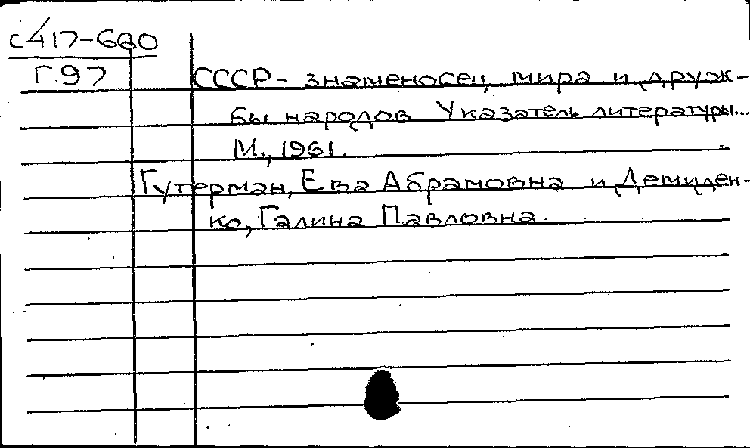 с417-660
Г.97
СССР - знаменосец мира и друж-
бы народов Указатель литературы...
М., 1961.
Гутерман, Ева Абрамовна и Демиден-
ко, Галина Павловна.